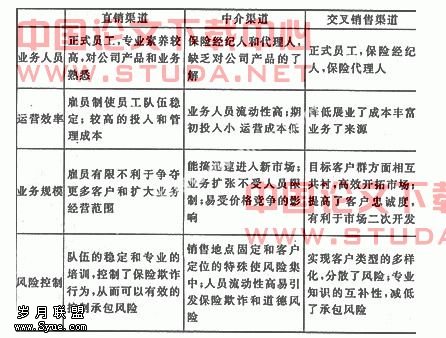 直销渠道
中介渠道
交叉销售渠道
业务人员
正式员工，专业素养较
高，对公司产品和业务
熟悉
保险经纪人和代理人，
缺乏对公司产品的了
解
正式员工，保险经纪
人，保险代理人
运营效率
雇员制使员工队伍稳
定；较高的投人和管
理成本
业务人员流动性高；期
初投入小 运营成本低
降低展业了成本丰富
业务了来源
业务规模
雇员有限不利于争夺
更多客户和扩大业务
经营范围
能搞迅速进入新市场；
业务扩张不受人员限
制；易受价格竞争的影
响
目标客户群方面相互
高效开拓市场；
提高了客户忠诚度，
有利于市场二次开发
风险控制
队伍的稳定和专业的
培训，控制了保险欺诈
行为，从而可以有效的
控制承包风险
销售地点固定和客户
定位的特殊使风险集
中；人员流动性高易引
发保险欺诈和道德风
险
实现客户类型的多样
化，分散了风险；专业
知识的互补性，减低
了承包风险
中国论文下载中心
WWW.STUDA.COM
中国论文下载
WWW.STUDA.C
岁月联盟
www.5yue.com